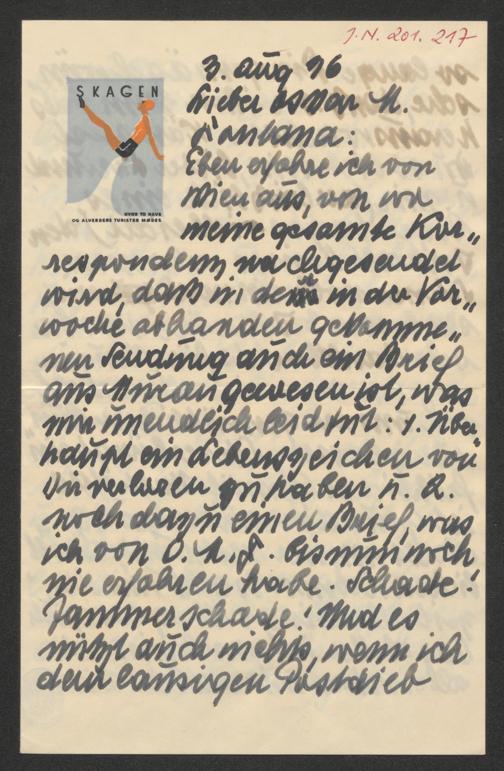 J.N. 201.217
3. aug 36
SKAGEN
HVOR TO HAVE
OG ALVERDENS TURISTER MØDES
Lieber Oskar M.
Fontana:
Eben erfahre ich von
Wien aus, von wo
meine gesamte Kor„
respondenz nachgesendet
wird, daß in der in der Vor„
woche abhanden gekomme„
nen Sendung auch ein Brief
aus Murau gewesen ist, was
mir unendlich leid tut: 1. Über
haupt ein Lebenszeichen von
Dir verloren zu haben u. 2.
noch dazu einen Brief, was
ich von O. M. F. bis nun noch
nie erfahren habe. Schade!
Jammerschade! Und es
nützt auch nichts, wenn ich
den lausigen Postdieb